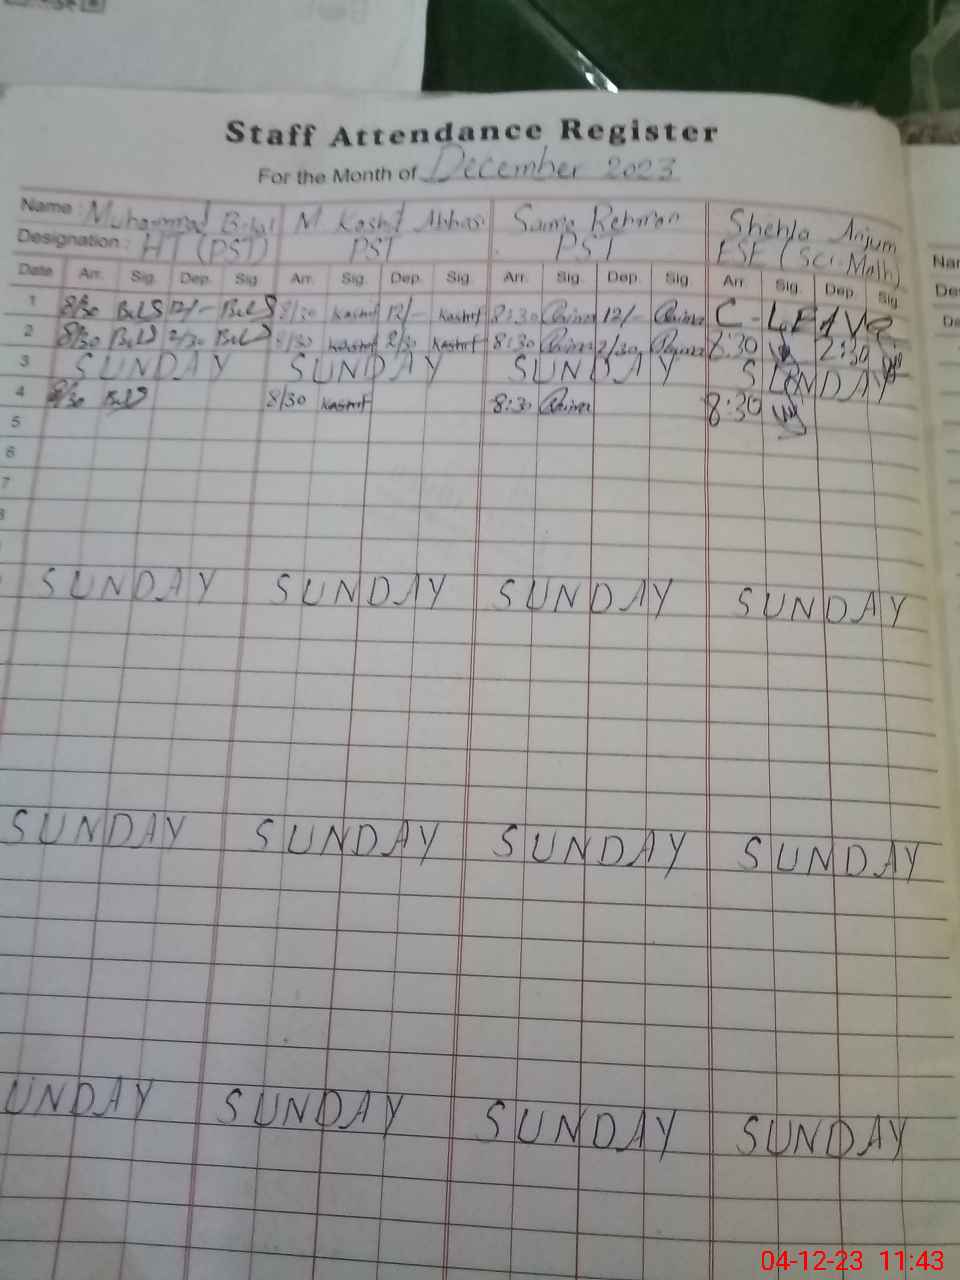 Staff Attendance Register
For the Month of December 2023
Name : Muhammad Bilal M Kashif Abbasi Sama Rehman Shehla Anjum
Designation : HT (PST) PST PST ESE (Sci-Math)
Date Arr. Sig. Dep. Sig. Arr. Sig. Dep. Sig. Arr. Sig. Dep. Sig. Arr. Sig. Dep. Sig.
1 8/30 12/- 8/30 Kashif 12/- Kashif 8:30 12/- C-LEAVE
2 8/30 2/30 8/30 Kashif 2/30 Kashif 8:30 2/30 8:30 2:30
3 SUNDAY SUNDAY SUNDAY SUNDAY
4 8/30 8/30 Kashif 8:30 8:30
5
6
7
8
SUNDAY SUNDAY SUNDAY SUNDAY
SUNDAY SUNDAY SUNDAY SUNDAY
UNDAY SUNDAY SUNDAY SUNDAY
04-12-23 11:43